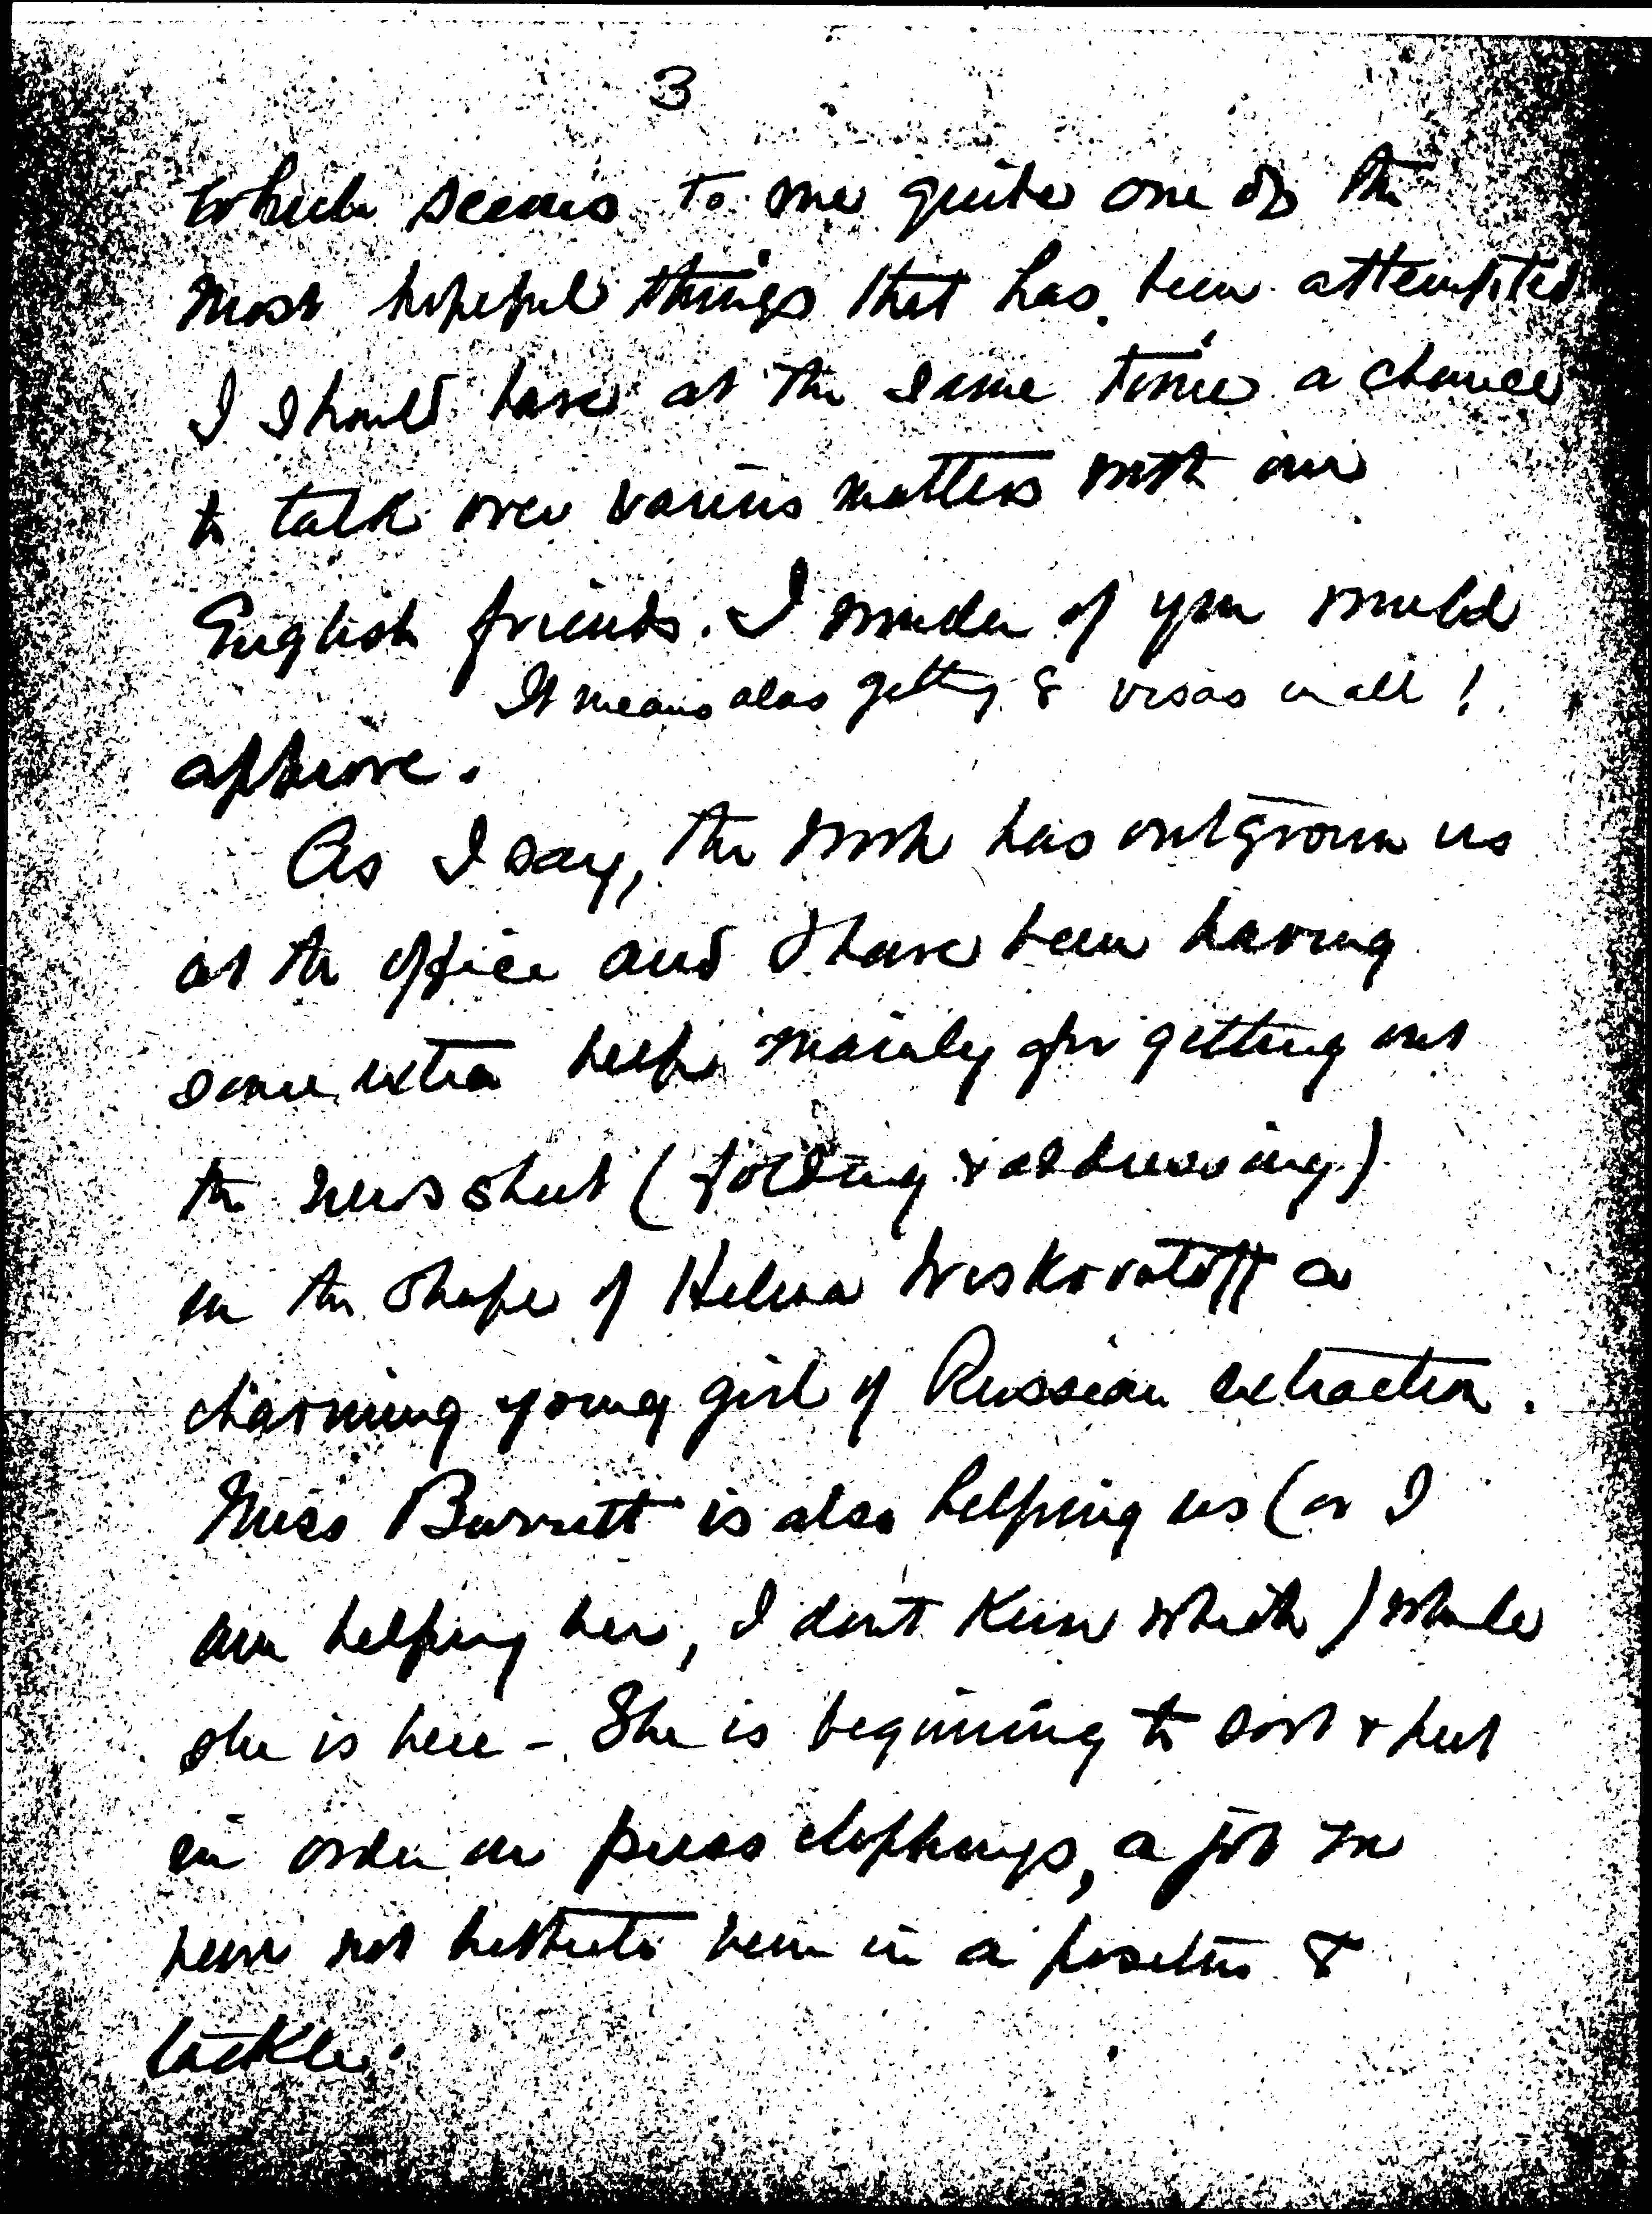 3
which seems to me quite one of the
most hopeful things that has been attempted
I should have at the same time a chance
to talk over various matters with our
English friends. I wonder if you would
It means alas getting 8 visas in all!
approve.
As I say, the work has outgrown us
at the office and I have been having
some extra help mainly for getting out
the news sheet (folding & addressing)
in the shape of Helena a
charming young girl of Russian extraction.
Miss Barrett is also helping us (or I
am helping her, I don't know which) while
she is here - She is beginning to sort & put
in order our press clippings, a job we
have not hitherto been in a position to
tackle.